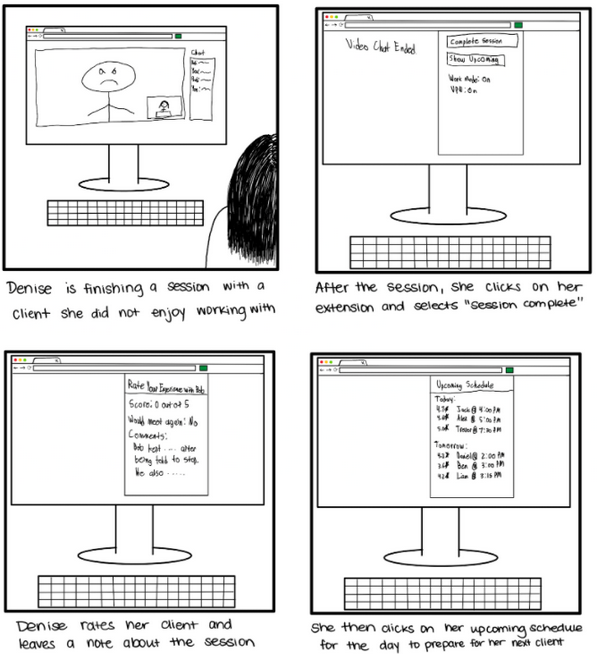 Chat
Denise is finishing a session with a
client she did not enjoy working with
Video Chat Ended
Complete Session
Show Upcoming
Work Mode: On
VPN: On
After the session, she clicks on her
extension and selects "session complete"
Rate Your Experience with Bob
Score: 0 out of 5
Would meet again: No
Comments:
Bob kept .... after
being told to stop.
He also .....
Denise rates her client and
leaves a note about the session
Upcoming Schedule
Today:
Jack @ 4:00 PM
Alex @ 5:00 PM
Trevor @ 7:00 PM
Tomorrow:
Daniel @ 2:00 PM
Ben @ 3:00 PM
Liam @ 3:15 PM
She then clicks on her upcoming schedule
for the day to prepare for her next client